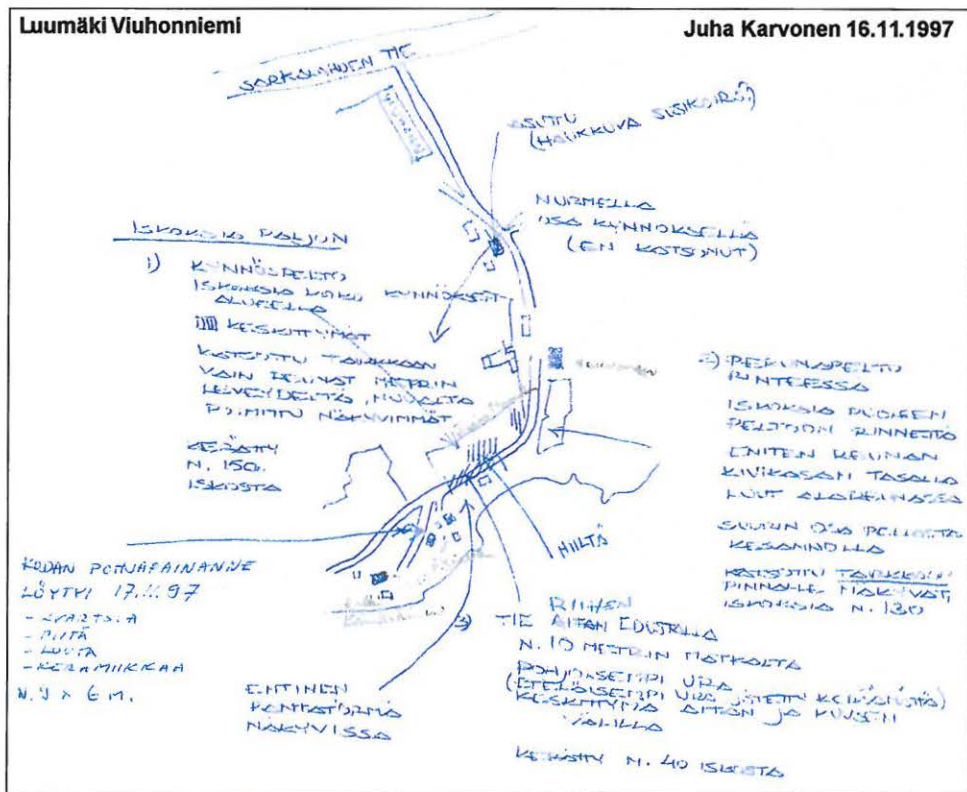 Luumäki Viuhonniemi
Juha Karvonen 16.11.1997
SARKALAHDEN TIE
ASUTTU
(HAUKKUVA SISÄKOIRA?)
NURMELLA
OSA KYNNÖKSELLÄ
(EN KATSONUT)
ISKOKSIA PALJON
1) KYNNÖSPELTO
ISKOKSIA KOKO KYNNÖKSEN
ALUEELLA
KESKITTYMÄT
KATSOTTU TARKKAAN
VAIN REUNAT METRIN
LEVEYDELTÄ, MUUALTA
POIMITTU NÄKYVIMMÄT
KERÄTTY
N. 150
ISKOSTA
2) PERUNAPELTO
RINTEESSÄ
ISKOKSIA PUOLEEN
PELTOON RINNETTÄ
ENITEN REUNAN
KIVIKASAN TASALLA
LUUT ALAREUNASSA
SUURIN OSA PELLOSTA
KESANNOLLA
KATSOTTU TARKKAAN
PINNALLE NÄKYVÄT,
ISKOKSIA N. 130
HIILTÄ
KODAN POHJAPAINANNE
LÖYTYI 17.11.97
- KVARTSIA
- PIITÄ
- LUUTA
- KERAMIIKKAA
N. 9 x 6 M.
ENTINEN
RANTATÖRMÄ
NÄKYVISSÄ
3) TIE RIIHEN
AITAN EDUSTALLA
N. 10 METRIN MATKALTA
POHJOISEMPI URA
(ETELÄISEMPI URA JÄTETTY KERÄÄMÄTTÄ)
KESKITTYMÄ AITAN JA KUUSEN
VÄLILLÄ
KERÄTTY N. 40 ISKOSTA